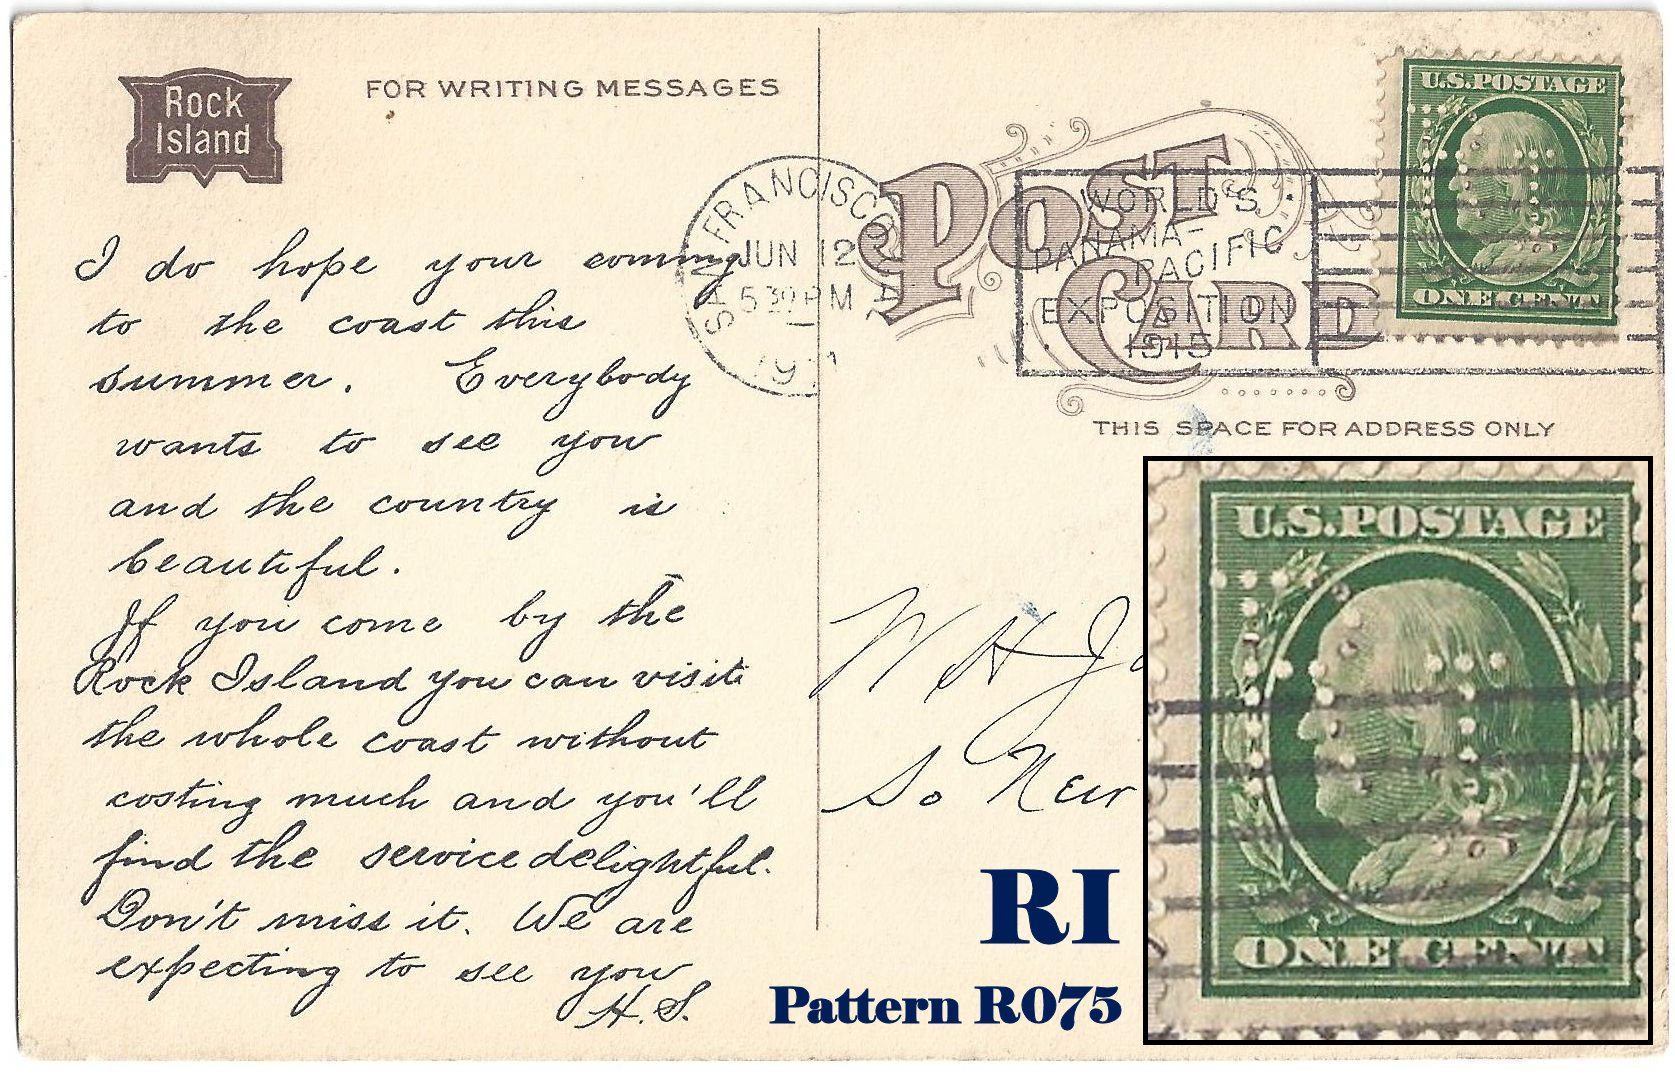 Rock
Island
FOR WRITING MESSAGES
I do hope your coming
to the coast this
summer. Everybody
wants to see you
and the country is
beautiful.
If you come by the
Rock Island you can visit
the whole coast without
costing much and you'll
find the service delightful.
Don't miss it. We are
expecting to see you
H.S.
SAN FRANCISCO, CAL
JUN 12
5 30 PM
WORLD'S
PANAMA-
PACIFIC
EXPOSITION
1915
POST
CARD
U.S. POSTAGE
ONE CENT
THIS SPACE FOR ADDRESS ONLY
W H
So New
U.S. POSTAGE
ONE CENT
RI
Pattern R075